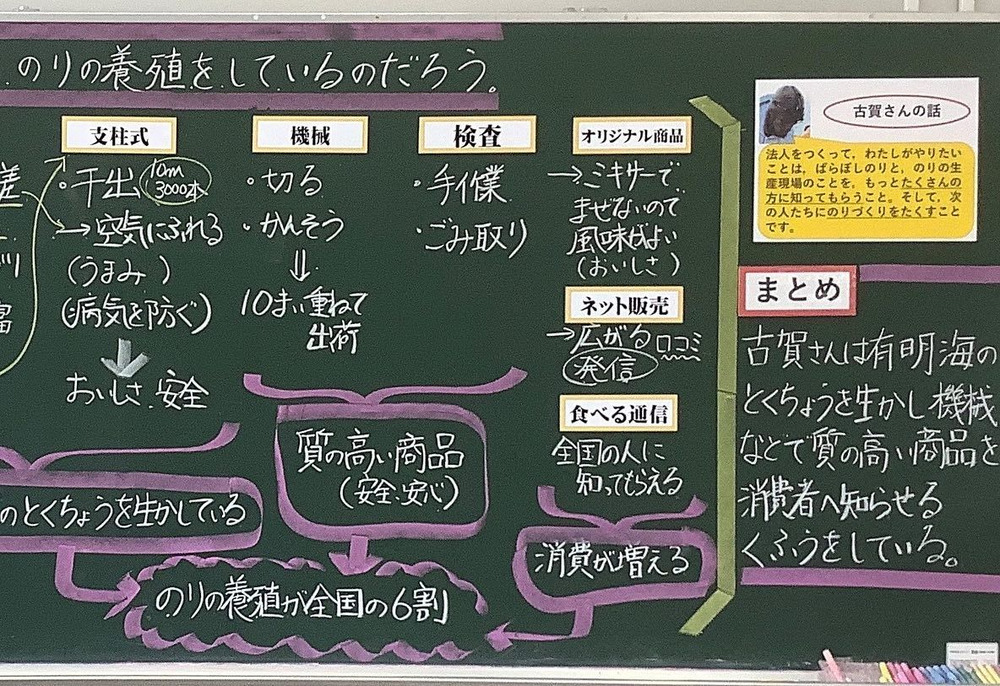 のりの養殖をしているのだろう。
差
支柱式
・干出
10m
3000本
→空気にふれる
(うまみ)
(病気を防ぐ)
おいしさ・安全
のとくちょうを生かしている
機械
・切る
・かんそう
⇓
10まい重ねて
出荷
検査
・手作業
・ごみ取り
質の高い商品
(安全・安心)
オリジナル商品
→ミキサーで
まぜないので
風味がよい
(おいしさ)
ネット販売
→広がる 口コミ
発信
食べる通信
全国の人に
知ってもらえる
消費が増える
のりの養殖が全国の6割
古賀さんの話
法人をつくって,わたしがやりたい
ことは,ぱらぼしのりと,のりの生
産現場のことを,もっとたくさんの
方に知ってもらうこと。そして,次
の人たちにのりづくりをたくすこと
です。
まとめ
古賀さんは有明海の
とくちょうを生かし機械
などで質の高い商品を
消費者へ知らせる
くふうをしている。